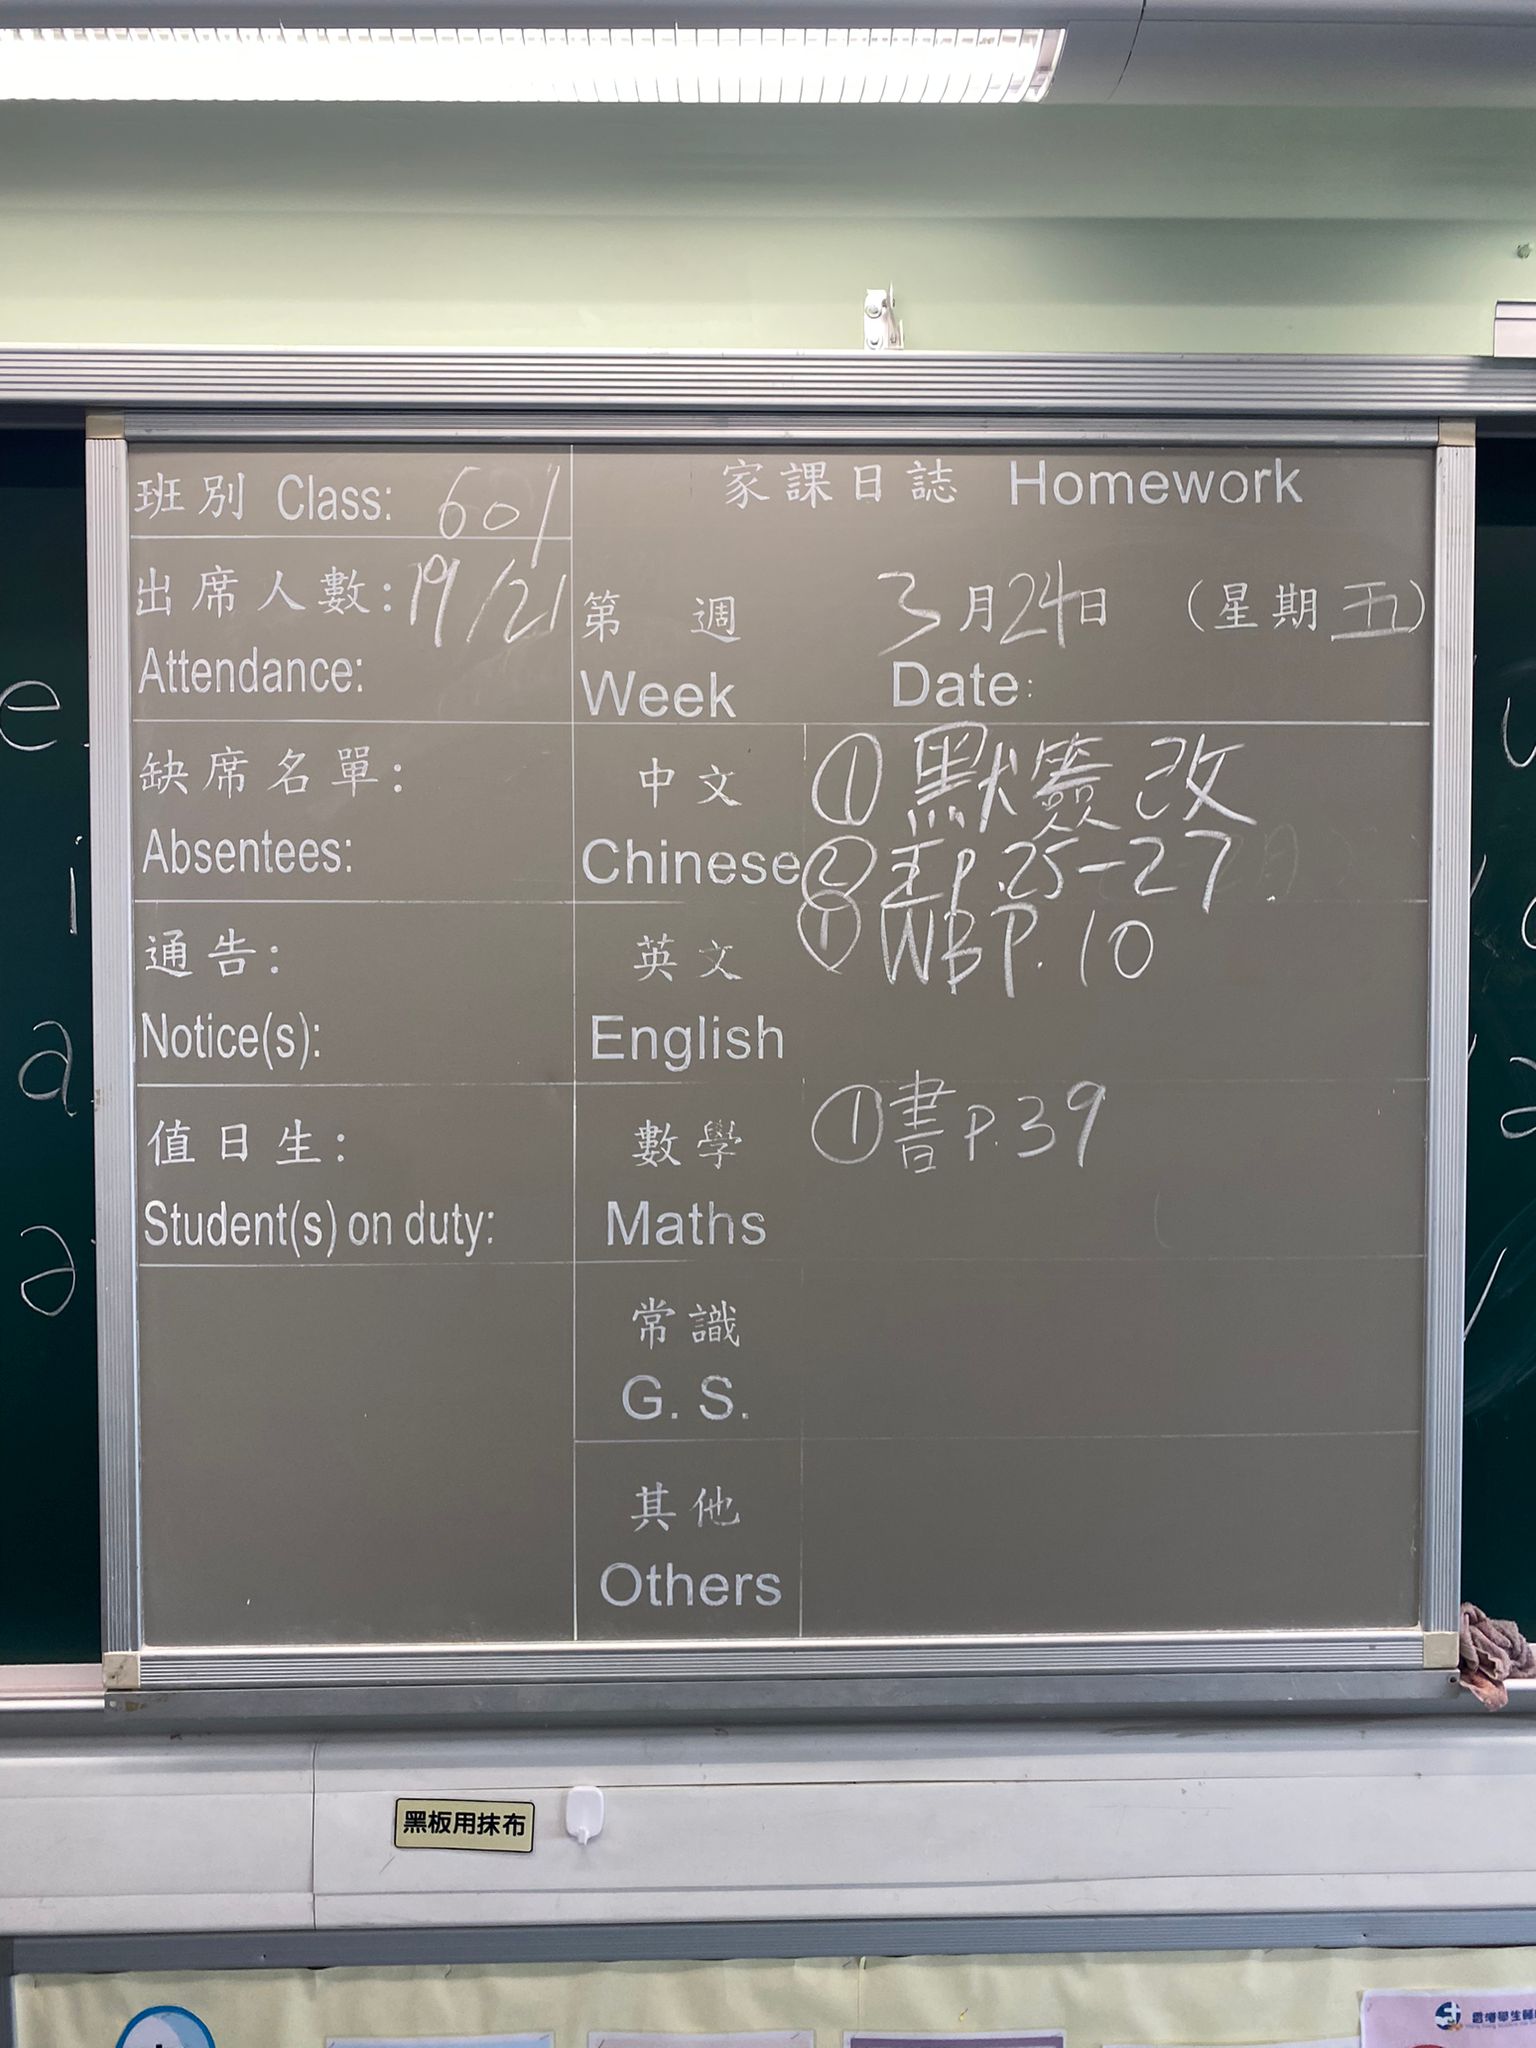 班別 Class: 601
出席人數: 19/21
Attendance:
缺席名單:
Absentees:
通告:
Notice(s):
值日生:
Student(s) on duty:
家課日誌 Homework
第 週 3月24日 (星期五)
Week Date:
中文 ① 默簽改
Chinese ② P.25-27
英文 ① WB P.10
English
數學 ① 書 P.39
Maths
常識
G. S.
其他
Others
e
i
a
a
黑板用抹布